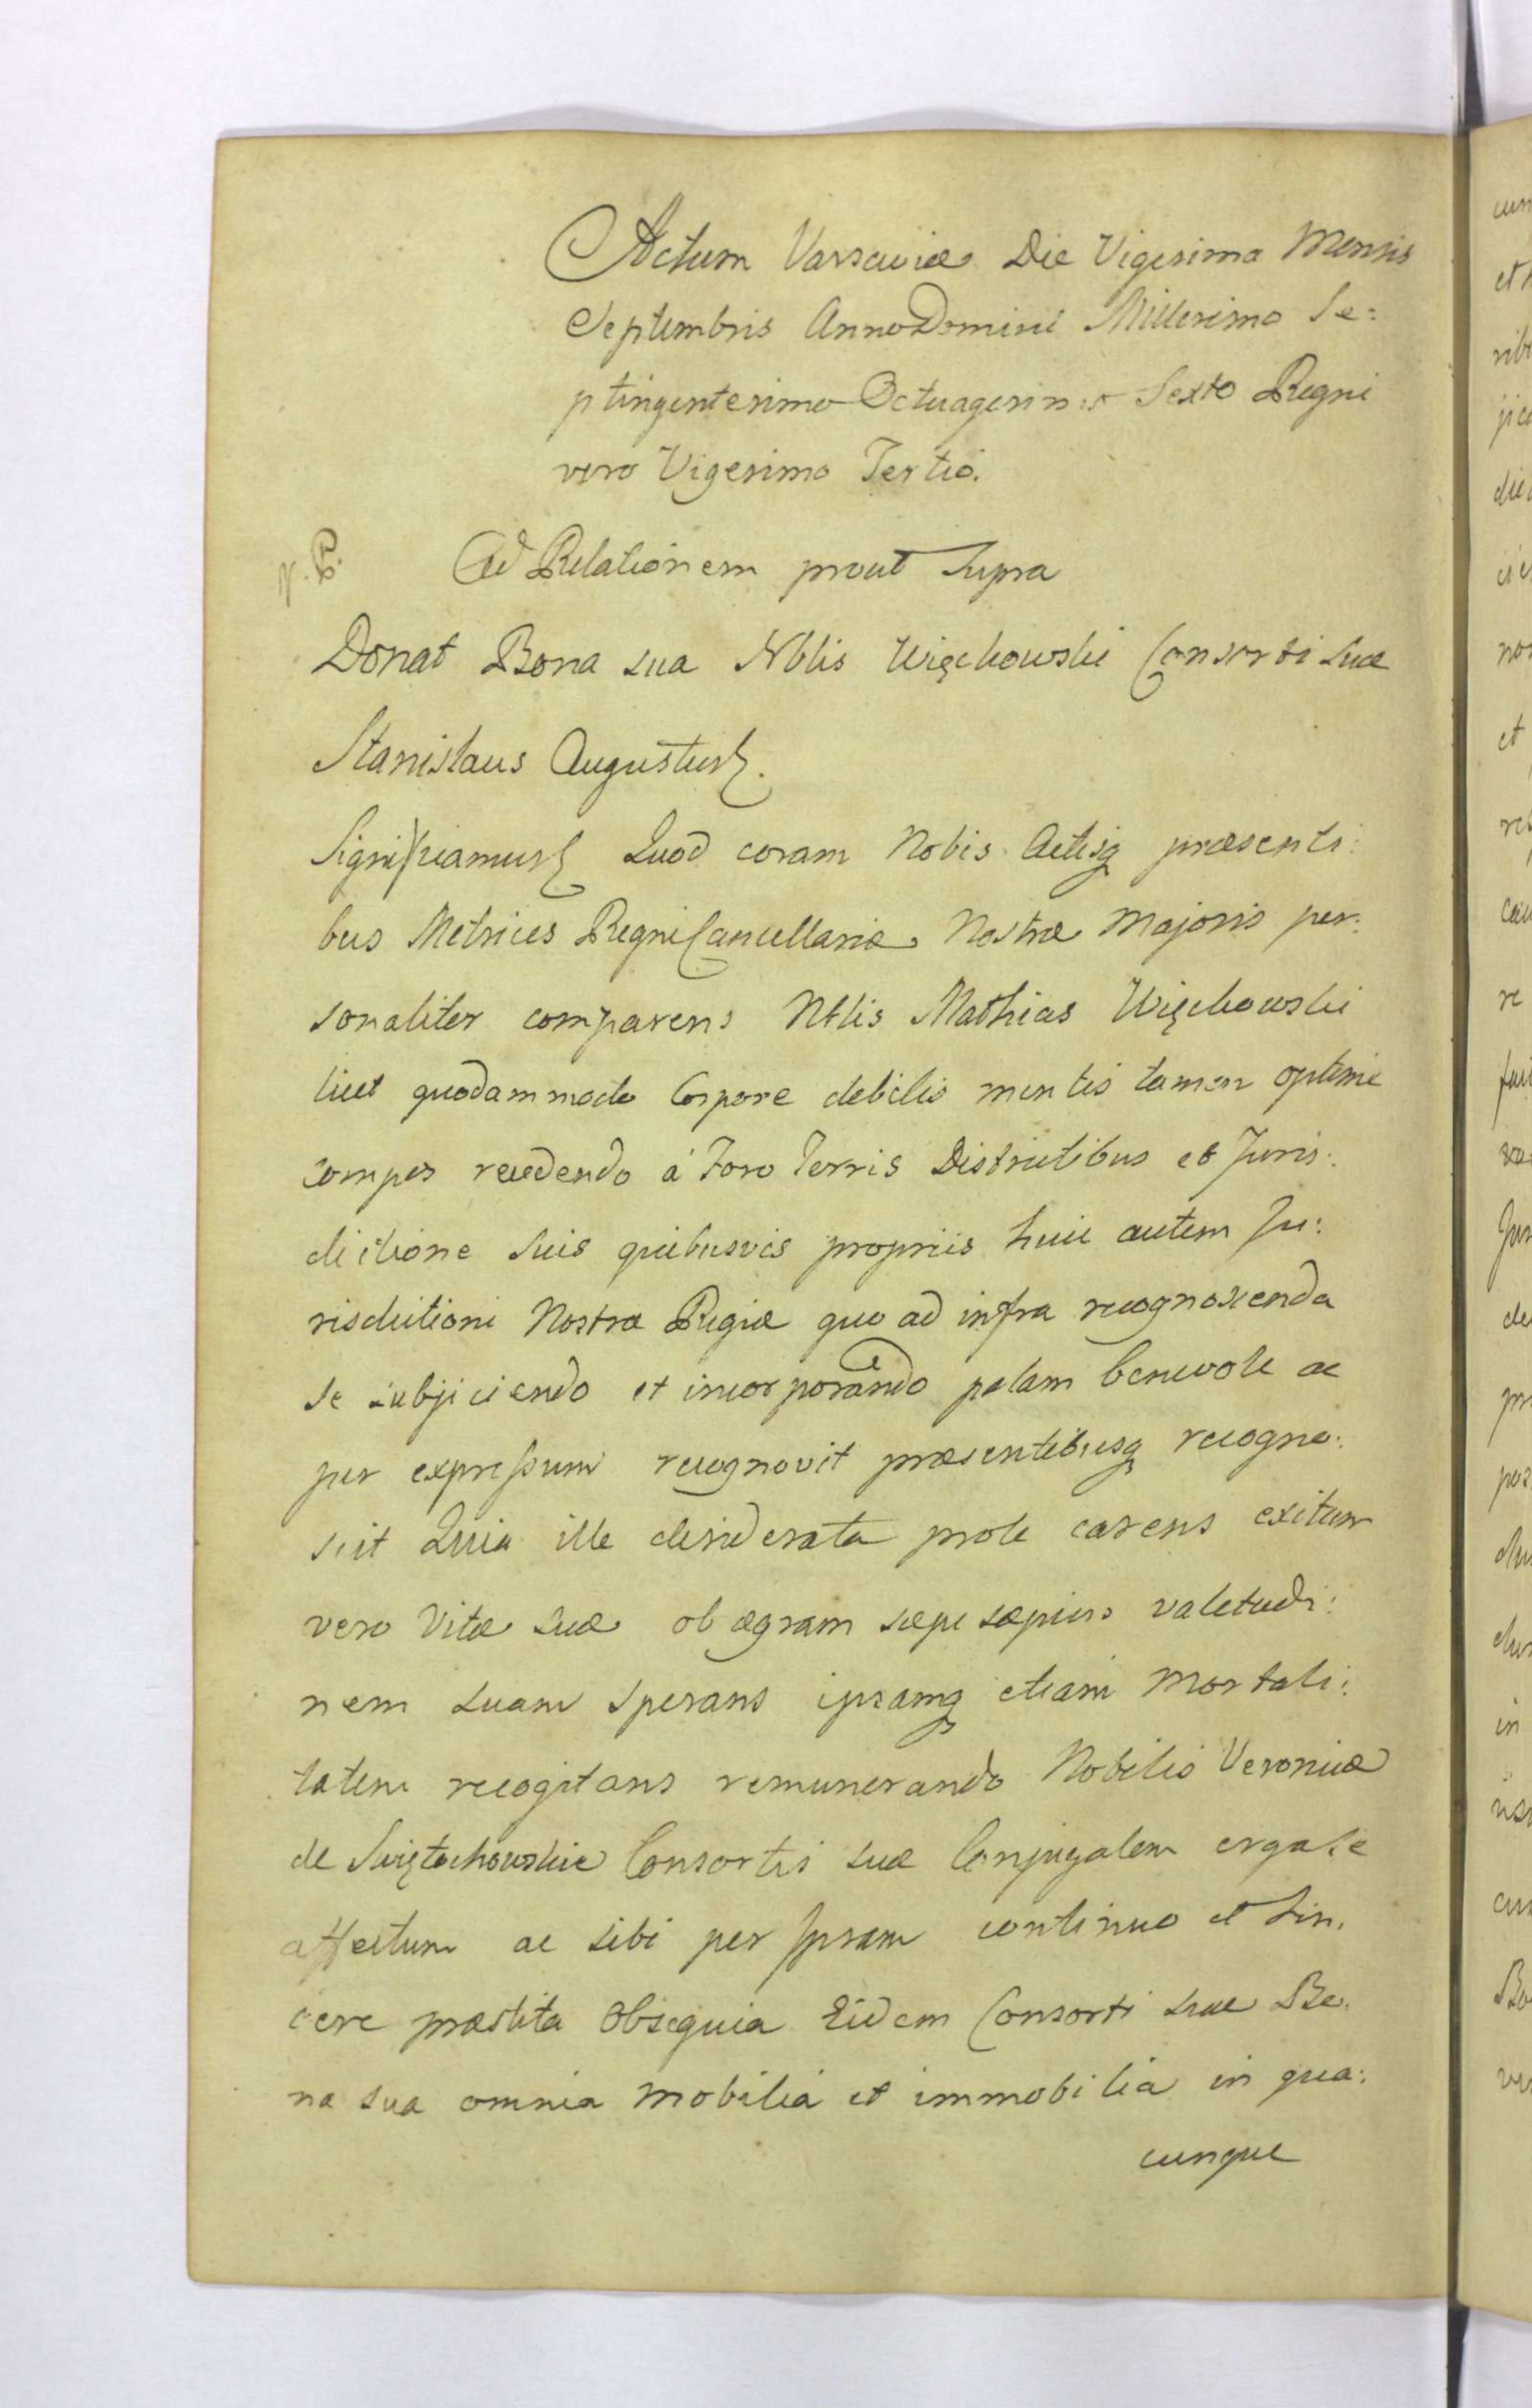 Actum Varsaviæ Die Vigesima Mensis
Septembris Anno Domini Millesimo Se:
ptingentesimo Octuagesimo Sexto Regni
vero Vigesimo Tertio.
Ad Relationem prout Supra
Donat Bona sua Nblis Więckowski Consorti suæ
Stanislaus Augustus
Significamus Quod coram Nobis Actisq præsenti:
bus Metrices Regni Cancellariæ Nostræ Majoris per:
sonaliter comparens Nblis Mathias Więckowski
licet quodammodo Corpore debilis mentis tamen optime
compos recedendo á Foro Terris Districtibus et Juris:
dictione suis quibusvis propriis huic autem Ju:
risdictioni Nostræ Regiæ quo ad infra recognoscenda
se subjiciendo et incorporando palam benevole ac
per expressum recognovit præsentibusq recogno:
scit Quia ille desiderata prole carens exitum
vero Vitæ suæ ob ægram sæpe sæpius valetudi:
nem suam sperans ipsamq etiam Mortali:
tatem recogitans remunerando Nobilis Veronicæ
de Swiętochowskie Consortis suæ Conjugalem erga se
affectum ac sibi per Ipsam continuo et sin.
cere præstita Obsequia Eidem Consorti suæ Bo.
na sua omnia Mobilia et immobilia in qua:
cunque